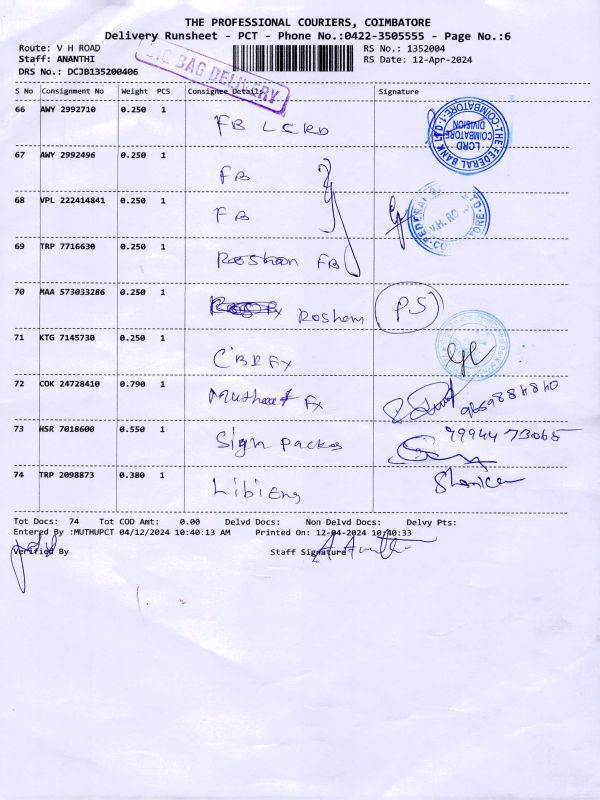 THE PROFESSIONAL COURIERS, COIMBATORE
Delivery Runsheet - PCT - Phone No.:0422-3505555 - Page No.:6
Route: V H ROAD RS No.: 1352004
Staff: ANANTHI RS Date: 12-Apr-2024
DRS No.: DCJB135200406
BAG DELIVERY
S No Consignment No Weight PCS Consignee Details Signature
66 AWY 2992710 0.250 1 FB LCRD
THE FEDERAL BANK LTD. COIMBATORE LCRD DIVISION COIMBATORE
67 AWY 2992496 0.250 1 FB
68 VPL 222414841 0.250 1 FB
69 TRP 7716630 0.250 1 Roshan FB
70 MAA 573033286 0.250 1 Roshem PS
71 KTG 7145730 0.250 1 CBE Fx
72 COK 24728410 0.790 1 Muthoot Fx
73 HSR 7018600 0.550 1 Sign Packes 99944 73065
74 TRP 2098873 0.380 1 Libi Eng
Tot Docs: 74 Tot COD Amt: 0.00 Delvd Docs: Non Delvd Docs: Delvy Pts:
Entered By :MUTHUPCT 04/12/2024 10:40:13 AM Printed On: 12-04-2024 10:40:33
Verified By Staff Signature